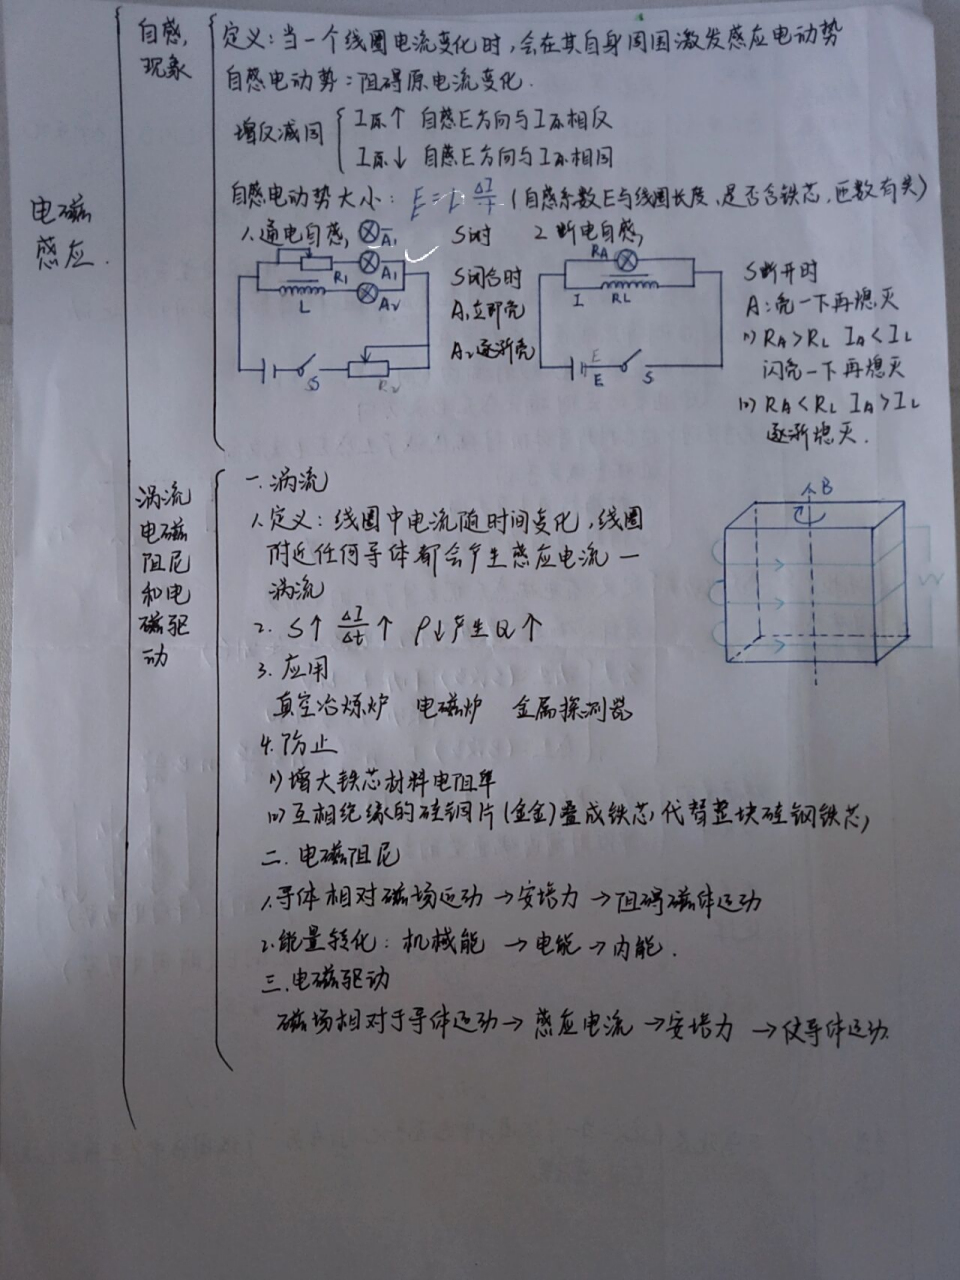 电磁
感应.
自感,
现象
定义:当一个线圈电流变化时,会在其自身周围激发感应电动势
自感电动势:阻碍原电流变化.
增反减同
I原↑ 自感E方向与I原相反
I原↓ 自感E方向与I原相同
自感电动势大小: E=L ΔI/T (自感系数E与线圈长度、是否含铁芯,匝数有关)
1.通电自感, A1 S时 2.断电自感,
R1 A1
L A2
S R2
S闭合时
A1立即亮
A2逐渐亮
RA
I RL
E
E S
S断开时
A:亮一下再熄灭
1) RA>RL IA<IL
闪亮一下再熄灭
11) RA<RL IA>IL
逐渐熄灭.
涡流
电磁
阻尼
和电
磁驱
动
一.涡流
1.定义:线圈中电流随时间变化,线圈
附近任何导体都会产生感应电流—
涡流
B
2. S↑ ΔI/Δt↑ ρ↓产生Q↑
3.应用
真空冶炼炉 电磁炉 金属探测器
4.防止
1)增大铁芯材料电阻率
11)互相绝缘的硅钢片(金金)叠成铁芯代替整块硅钢铁芯,
二.电磁阻尼
1.导体相对磁场运动→安培力→阻碍磁体运动
2.能量转化:机械能→电能→内能.
三.电磁驱动
磁场相对于导体运动→感应电流→安培力→使导体运动.